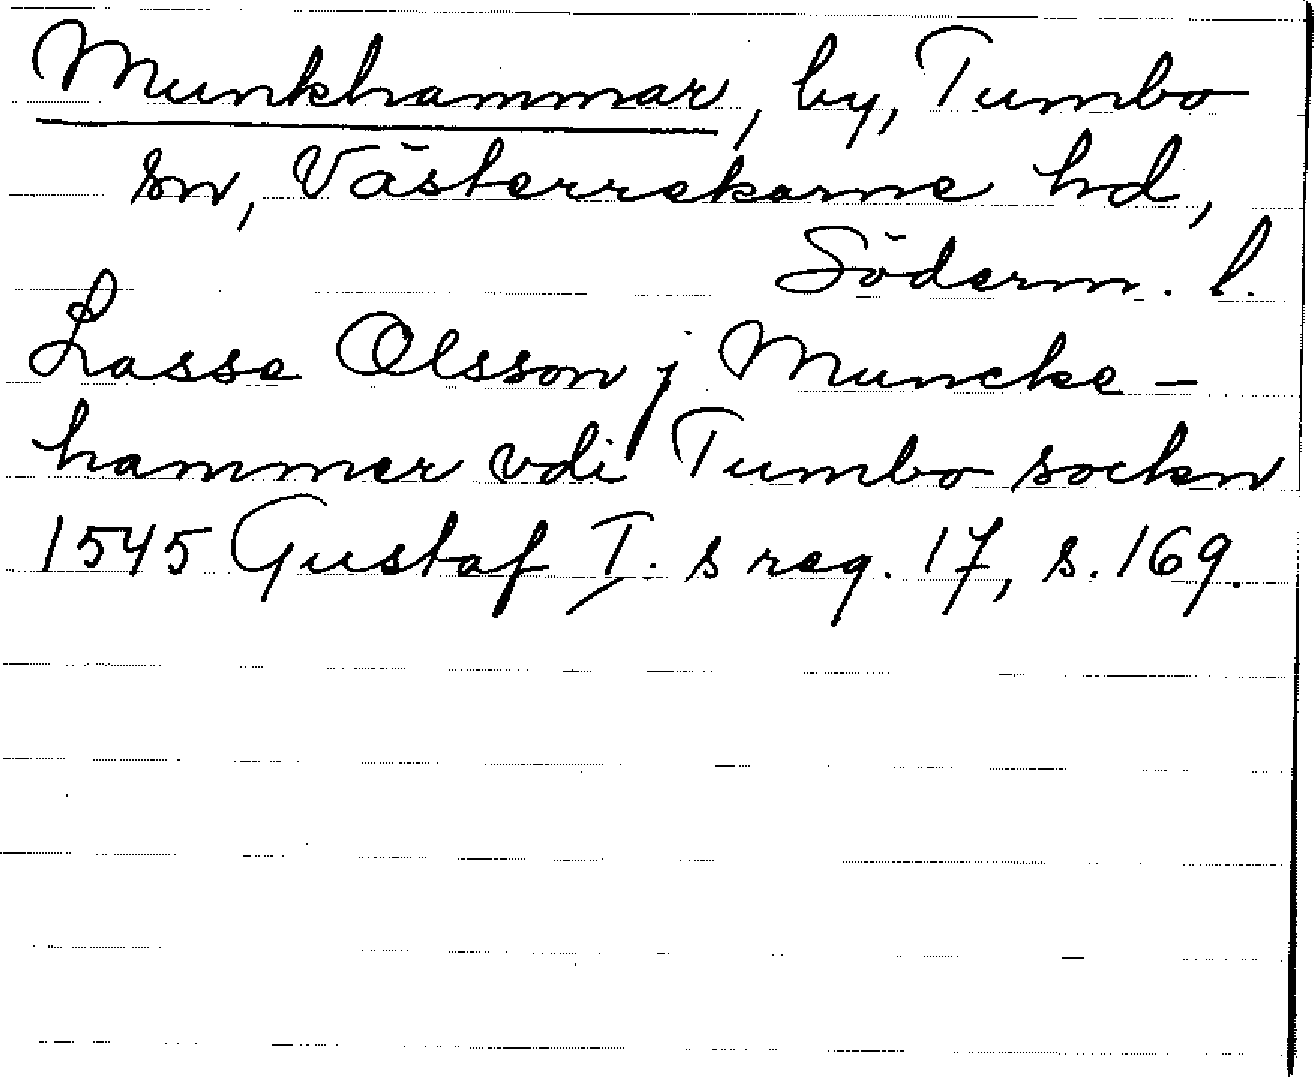 Munkhammar, by, Tumbo
sn, Västerrekarne hd,
Söderm. l.
Lasse Olsson j Muncke-
hammer vdi Tumbo sockn
1545 Gustaf I.s reg. 17, s. 169.